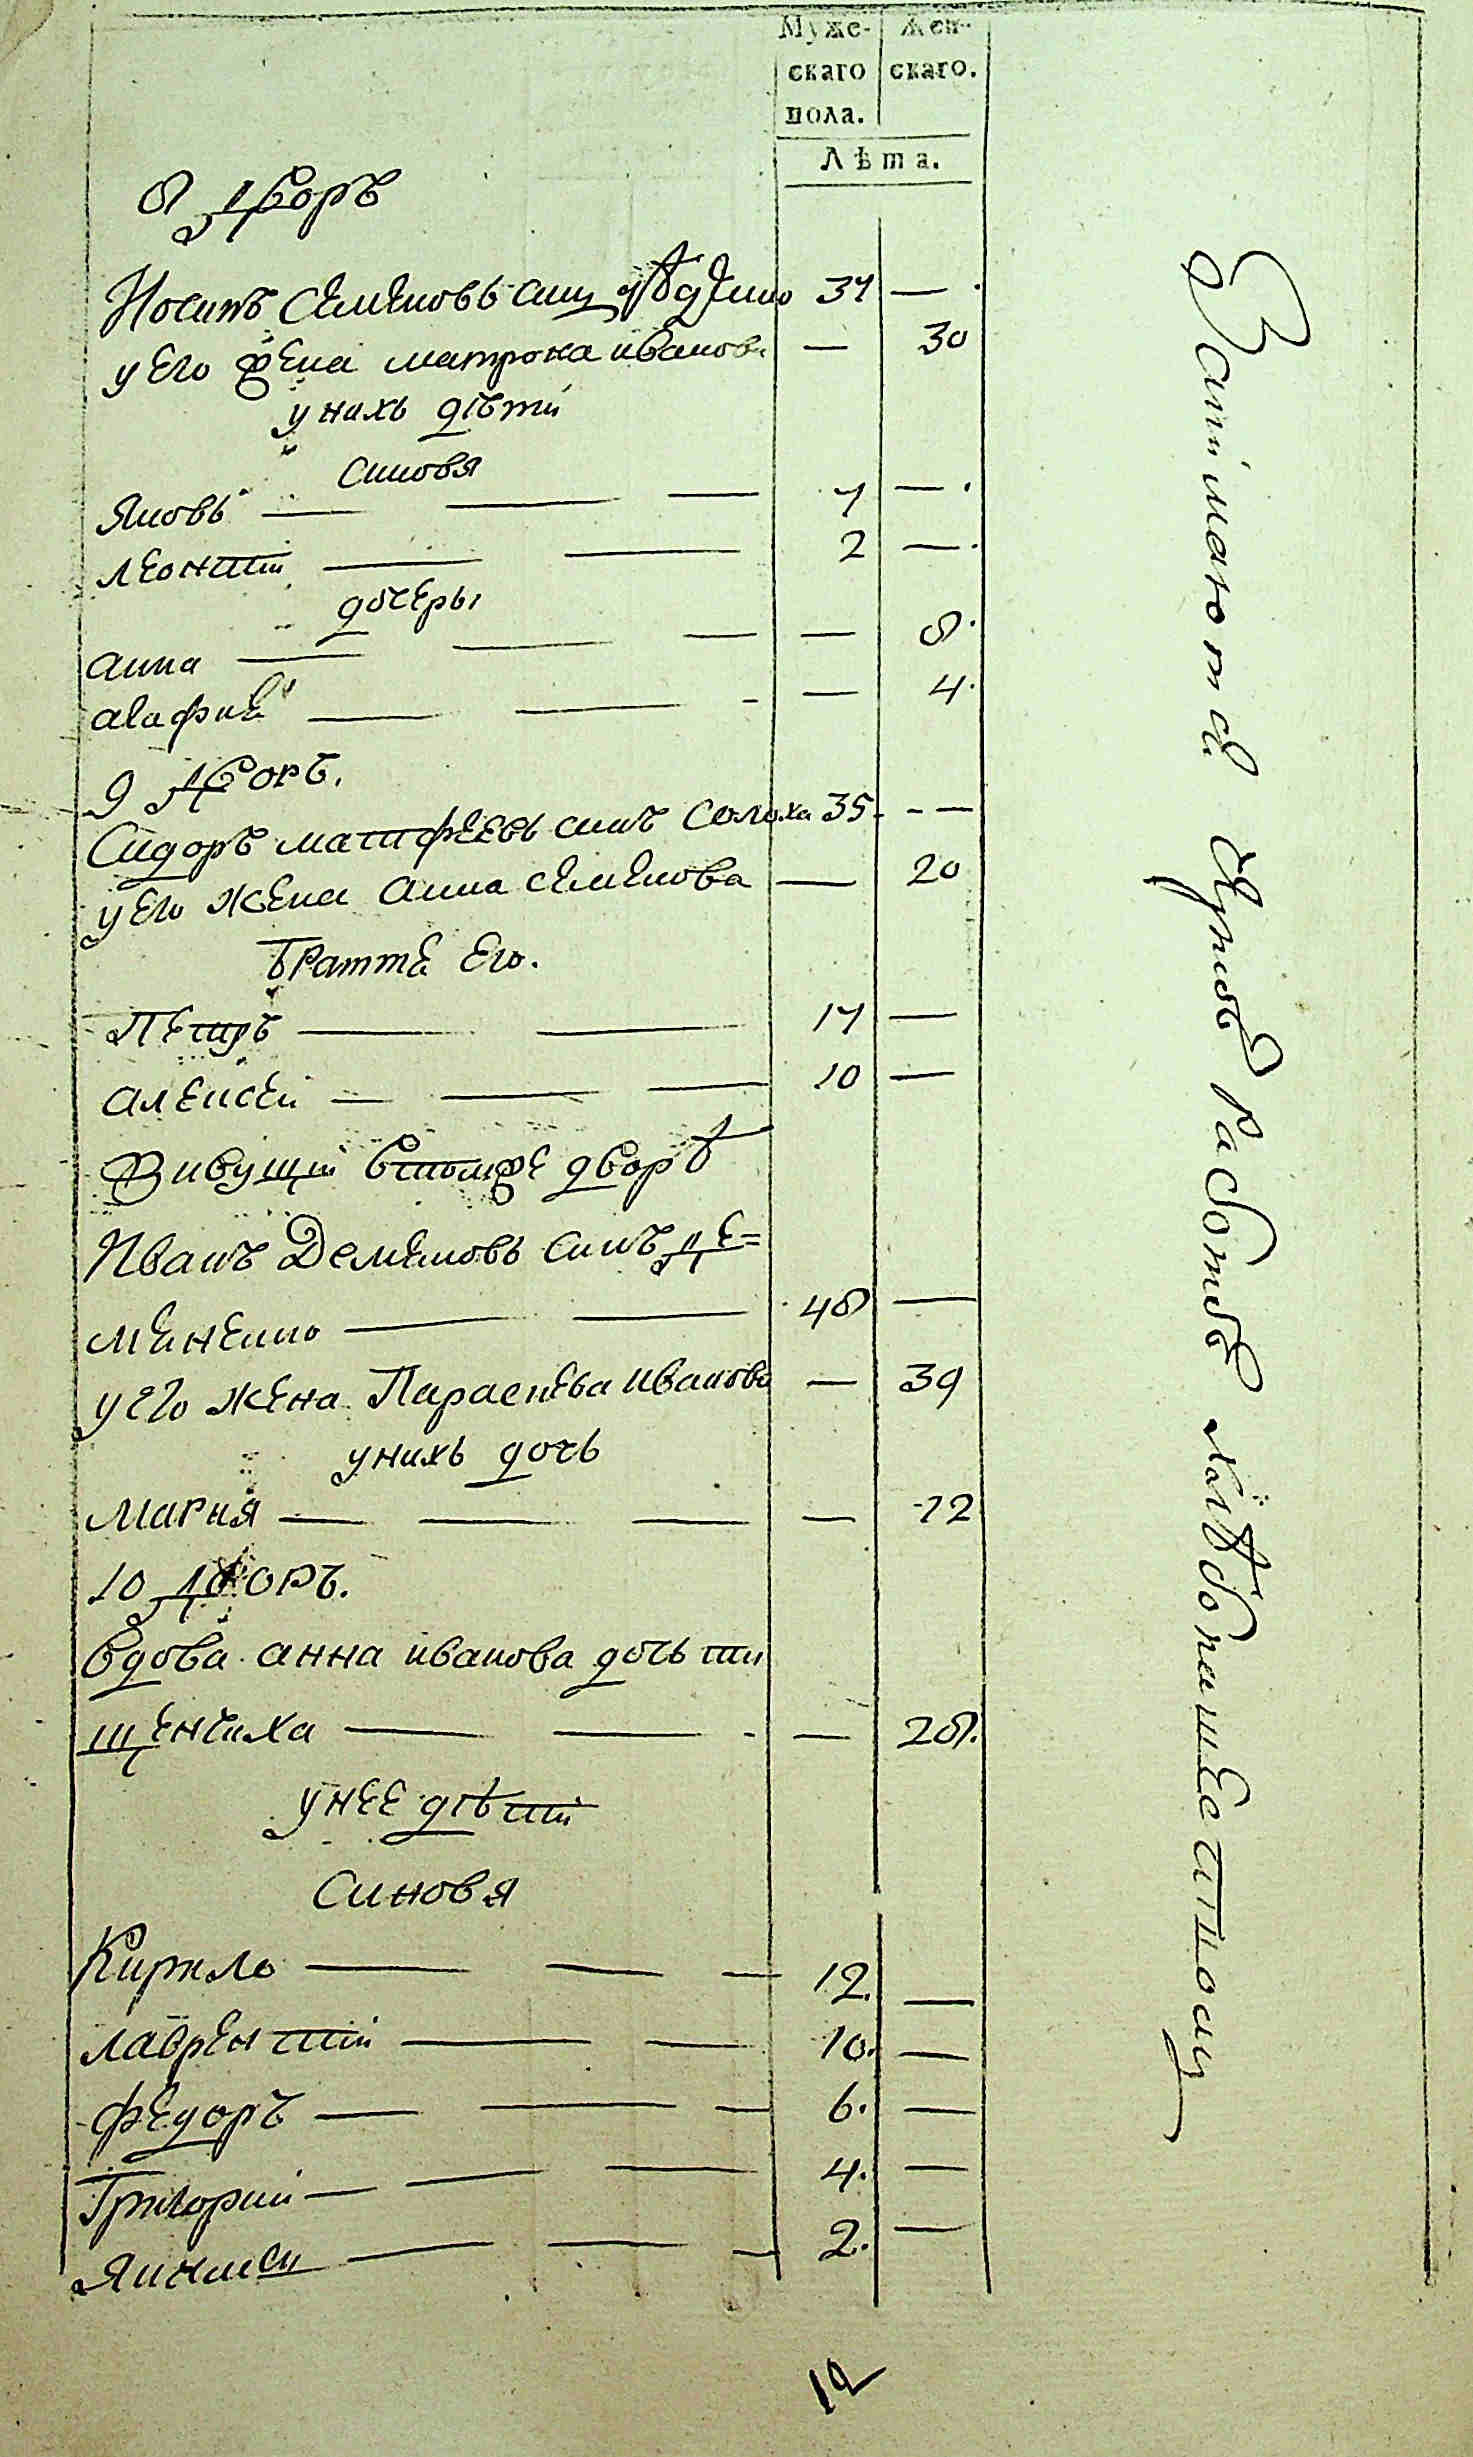 Муже-
скаго
пола.
Жен-
скаго.
Лѣта.
8 Дворъ
Иосипъ Семеновъ синъ 37 — .
у его жена матрона иванова — 30
у нихъ дѣти
синовя
Яковъ — — — 7 — .
леонтіи — — 2 — .
дочеры
анна — — — — 8.
агафия — — - — 4.
9 Дворъ.
Сидоръ матфеевъ синъ Солоха 35. - —
у его жена анна семенова — 20
братте его.
Петръ — — 17 —
алексеи — — — 10 —
Живущіи втомже дворѣ
Иванъ Деменовъ синъ де=
мененко — — 48 —
у его жена Параскева иванова — 39
унихъ дочь
Мария — — — — 12
10 Дворъ.
вдова анна иванова дочь ти
щенчиха — — - — 28.
унее дѣтіи
Синовя
Кирило — — — 12. —
лаврентіи — — 10. —
Федоръ — — — 6. —
Григории — — — 4. —
Яким — — — 2. —
Занімаютса чорною работою хлѣбопашествомъ
12